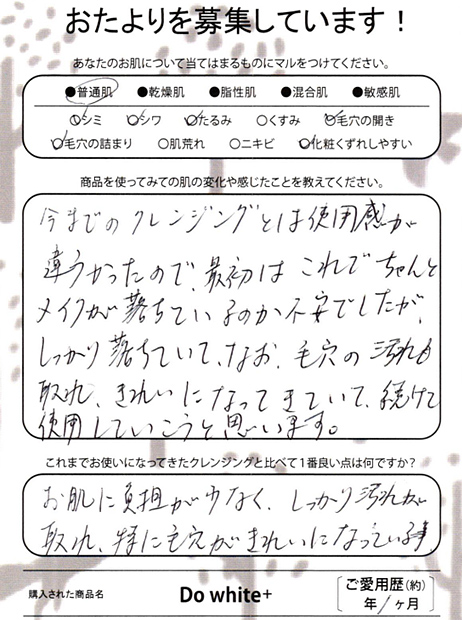 おたよりを募集しています！
あなたのお肌について当てはまるものにマルをつけてください。
●普通肌 ●乾燥肌 ●脂性肌 ●混合肌 ●敏感肌
○シミ ○シワ ○たるみ ○くすみ ○毛穴の開き
○毛穴の詰まり ○肌荒れ ○ニキビ ○化粧くずれしやすい
商品を使ってみての肌の変化や感じたことを教えてください。
今までのクレンジングとは使用感が
違うかったので、最初は これで ちゃんと
メイクが落ちているのか不安でしたが、
しっかり 落ちていて、なお、毛穴の 汚れも
取れ、きれいになってきていて、続けて
使用していこうと思います。
これまでお使いになってきたクレンジングと比べて1番良い点は何ですか？
お肌に負担が少なく、しっかり汚れが
取れ、特に毛穴がきれいになっている事。
購入された商品名 Do white+ ご愛用歴(約)
年 1ヶ月